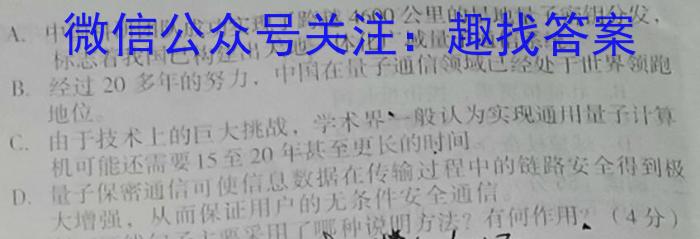 微信公众号关注：趣找答案
A. 4600公里的星地量子密钥分发，
标志着我国已构建出天地
B. 经过20多年的努力，中国在量子通信领域已经处于世界领跑
地位。
C. 由于技术上的巨大挑战，学术界一般认为实现通用量子计算
机可能还需要15至20年甚至更长的时间
D. 量子保密通信可使信息数据在传输过程中的链路安全得到极
大增强，从而保证用户的无条件安全通信。
采用了哪种说明方法？有何作用？（4分）